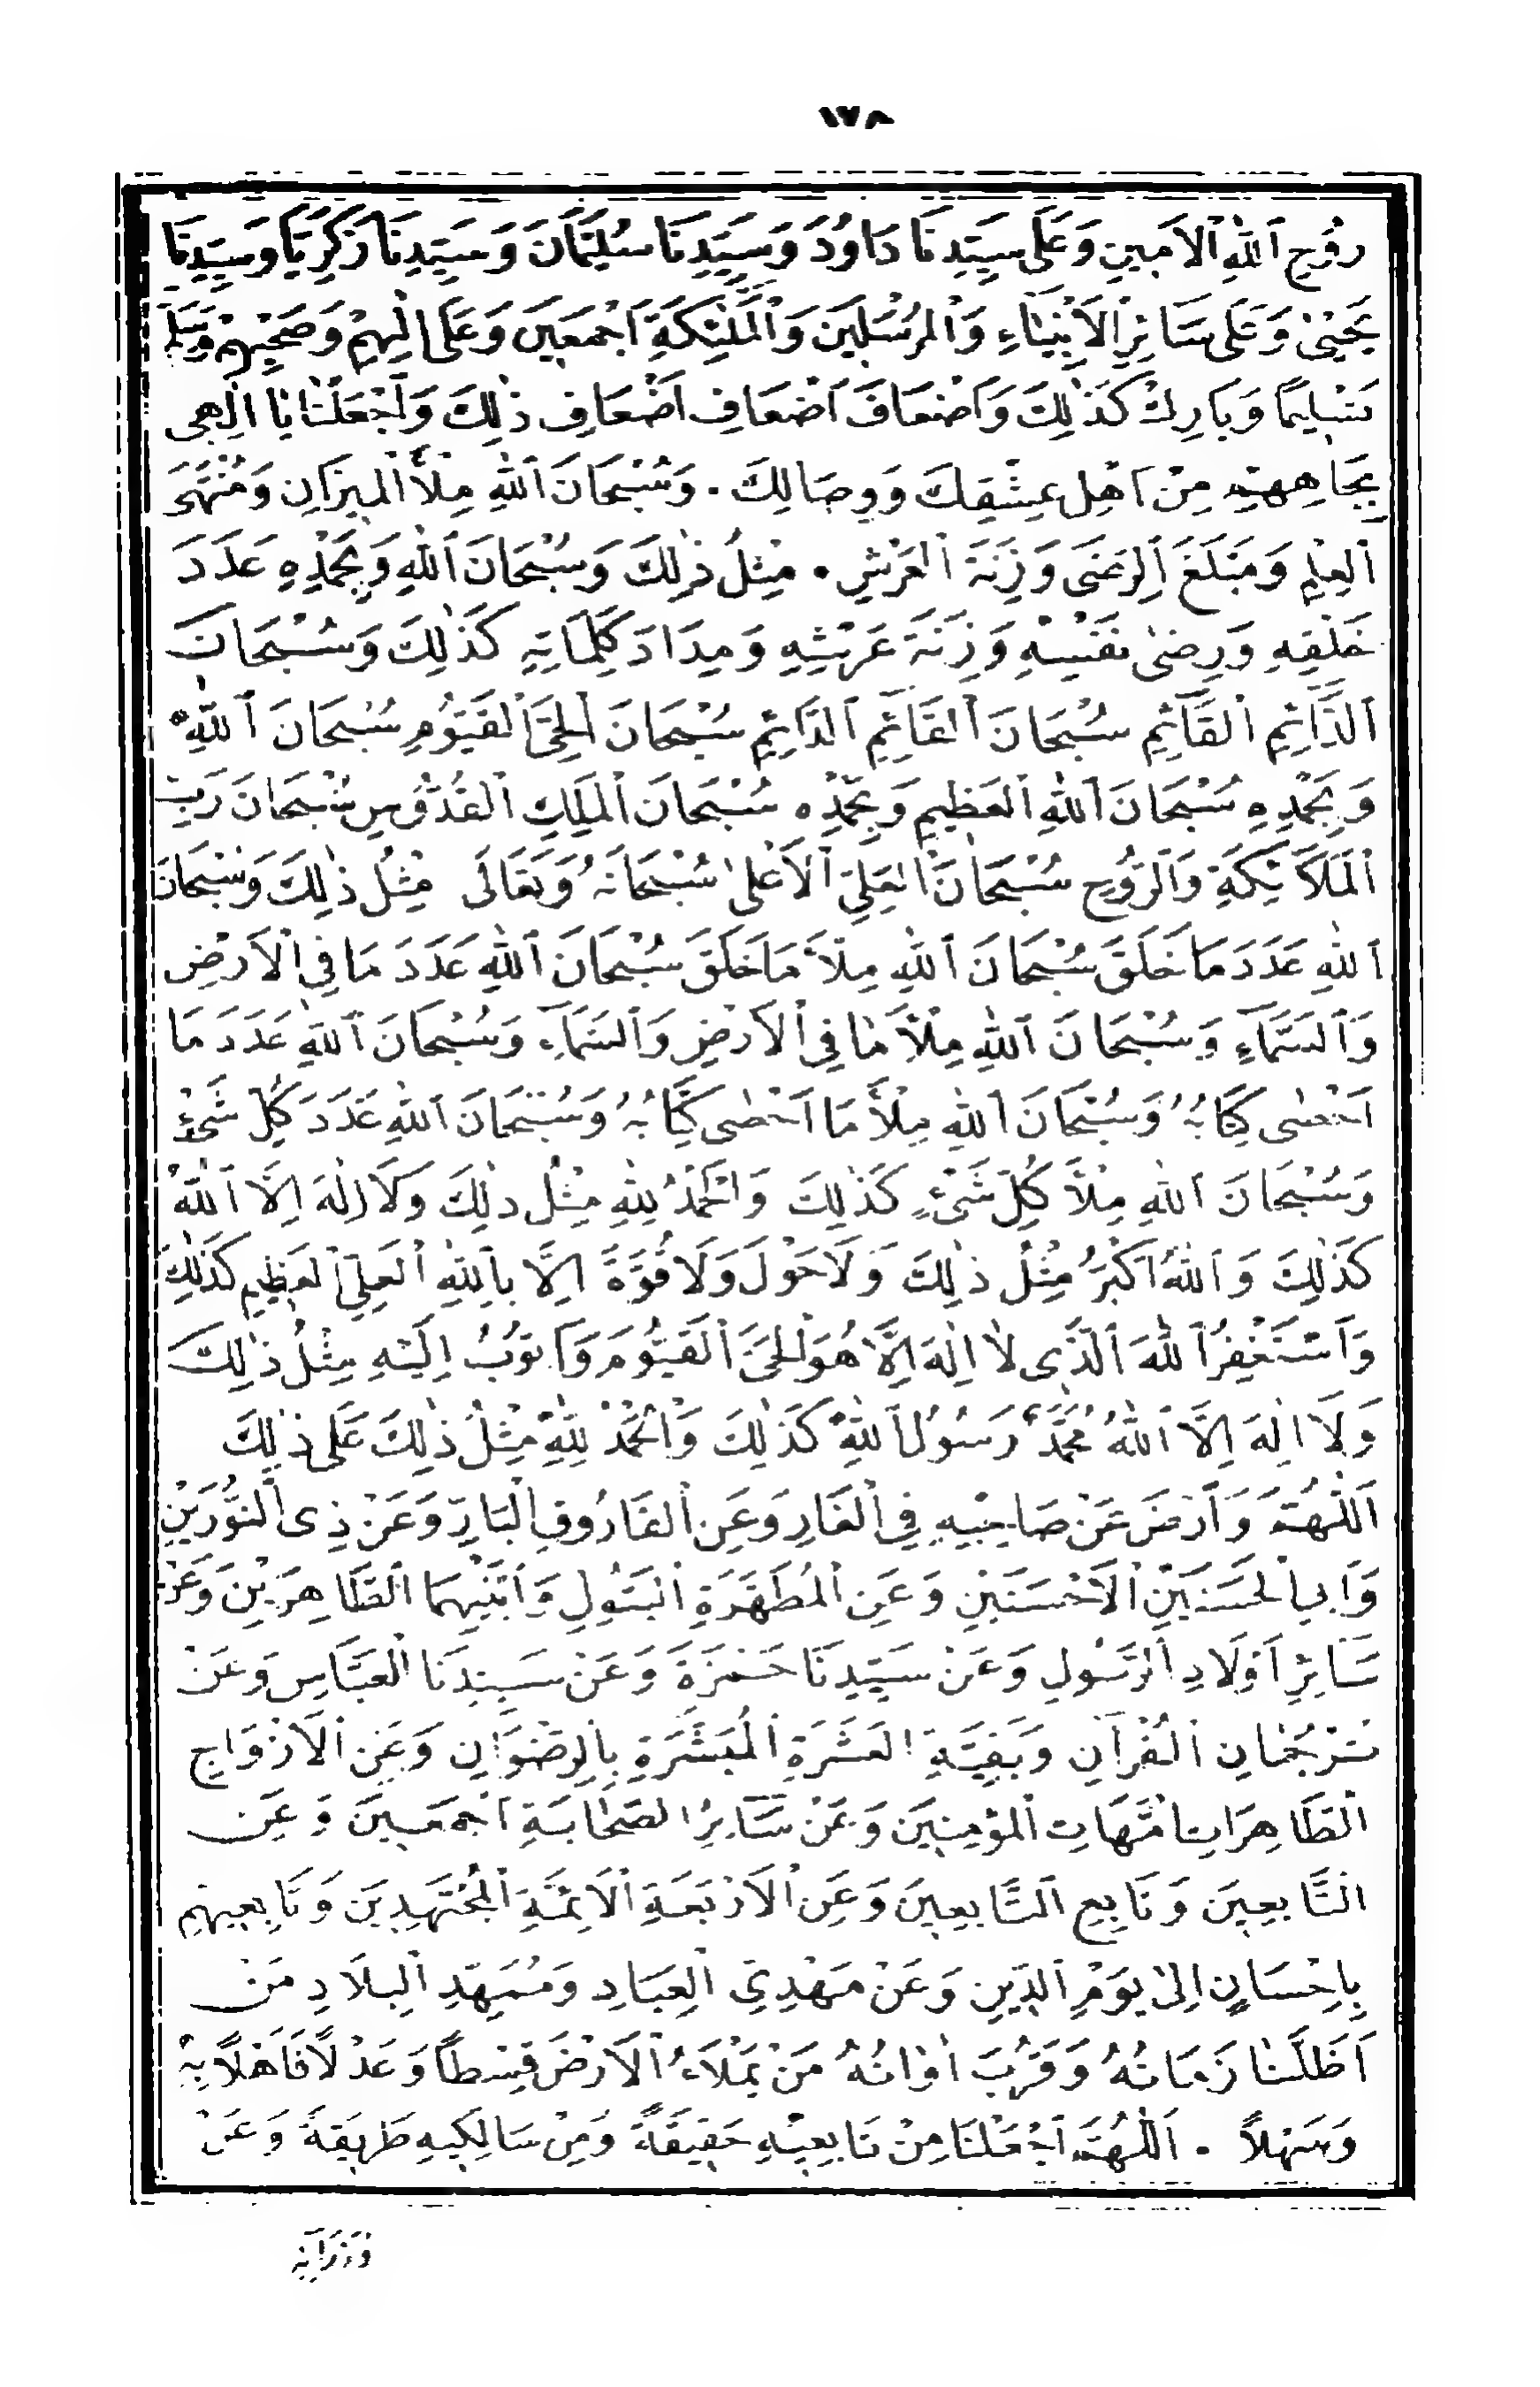 ١٧٨
رُوحِ ٱللّٰهِ ٱلْاَمِينِ وَعَلَى سَيِّدِنَا دَاوُدَ وَسَيِّدِنَا سُلَيْمَانَ وَسَيِّدِنَا زَكَرِيَّا وَسَيِّدِنَا
يَحْيٰى وَعَلَى سَائِرِ ٱلْاَنْبِيَاءِ وَٱلْمُرْسَلِينَ وَٱلْمَلٰئِكَةِ اَجْمَعِينَ وَعَلَى اٰلِهِمْ وَصَحْبِهِمْ وَسَلِّمْ
تَسْلِيمًا وَبَارِكْ كَذٰلِكَ وَاَضْعَافَ اَضْعَافِ اَضْعَافِ ذٰلِكَ وَٱجْعَلْنَا يَا اِلٰهِى
بِجَاهِهِمْ مِنْ اَهْلِ عِشْقِكَ وَوِصَالِكَ . وَسُبْحَانَ ٱللّٰهِ مِلْأَ ٱلْمِيزَانِ وَمُنْتَهَى
ٱلْعِلْمِ وَمَبْلَغَ ٱلرِّضَى وَزِنَةَ ٱلْعَرْشِ . مِثْلُ ذٰلِكَ وَسُبْحَانَ ٱللّٰهِ وَبِحَمْدِهِ عَدَدَ
خَلْقِهِ وَرِضٰى نَفْسِهِ وَزِنَةَ عَرْشِهِ وَمِدَادَ كَلِمَاتِهِ كَذٰلِكَ وَسُبْحَانَ
ٱلدَّائِمِ ٱلْقَائِمِ سُبْحَانَ ٱلْقَائِمِ ٱلدَّائِمِ سُبْحَانَ ٱلْحَيِّ ٱلْقَيُّومِ سُبْحَانَ ٱللّٰهِ
وَبِحَمْدِهِ سُبْحَانَ ٱللّٰهِ ٱلْعَظِيمِ وَبِحَمْدِهِ سُبْحَانَ ٱلْمَلِكِ ٱلْقُدُّوسِ سُبْحَانَ رَبِّ
ٱلْمَلَائِكَةِ وَٱلرُّوحِ سُبْحَانَ ٱلْعَلِيِّ ٱلْاَعْلٰى سُبْحَانَهُ وَتَعَالَى مِثْلُ ذٰلِكَ وَسُبْحَانَ
ٱللّٰهِ عَدَدَ مَا خَلَقَ سُبْحَانَ ٱللّٰهِ مِلْأَ مَا خَلَقَ سُبْحَانَ ٱللّٰهِ عَدَدَ مَا فِى ٱلْاَرْضِ
وَٱلسَّمَآءِ وَسُبْحَانَ ٱللّٰهِ مِلْأَ مَا فِى ٱلْاَرْضِ وَٱلسَّمَآءِ وَسُبْحَانَ ٱللّٰهِ عَدَدَ مَا
اَحْصٰى كِتَابُهُ وَسُبْحَانَ ٱللّٰهِ مِلْأَ مَا اَحْصٰى كِتَابُهُ وَسُبْحَانَ ٱللّٰهِ عَدَدَ كُلِّ شَىْءٍ
وَسُبْحَانَ ٱللّٰهِ مِلْأَ كُلِّ شَىْءٍ كَذٰلِكَ وَٱلْحَمْدُ لِلّٰهِ مِثْلُ ذٰلِكَ وَلَا اِلٰهَ اِلَّا ٱللّٰهُ
كَذٰلِكَ وَٱللّٰهُ اَكْبَرُ مِثْلُ ذٰلِكَ وَلَا حَوْلَ وَلَا قُوَّةَ اِلَّا بِٱللّٰهِ ٱلْعَلِيِّ ٱلْعَظِيمِ كَذٰلِكَ
وَاَسْتَغْفِرُ ٱللّٰهَ ٱلَّذِى لَا اِلٰهَ اِلَّا هُوَ ٱلْحَىَّ ٱلْقَيُّومَ وَاَتُوبُ اِلَيْهِ مِثْلُ ذٰلِكَ
وَلَا اِلٰهَ اِلَّا ٱللّٰهُ مُحَمَّدٌ رَسُولُ ٱللّٰهِ كَذٰلِكَ وَٱلْحَمْدُ لِلّٰهِ مِثْلُ ذٰلِكَ عَلَى ذٰلِكَ
اَللّٰهُمَّ وَٱرْضَ عَنْ صَاحِبِهِ فِى ٱلْغَارِ وَعَنِ ٱلْفَارُوقِ ٱلْبَارِّ وَعَنْ ذِى ٱلنُّورَيْنِ
وَاَبِى ٱلْحَسَنَيْنِ ٱلْاَحْسَنَيْنِ وَعَنِ ٱلْمُطَهَّرَةِ ٱلْبَتُولِ وَٱبْنَيْهِمَا ٱلطَّاهِرَيْنِ وَعَنْ
سَائِرِ اَوْلَادِ ٱلرَّسُولِ وَعَنْ سَيِّدِنَا حَمْزَةَ وَعَنْ سَيِّدِنَا ٱلْعَبَّاسِ وَعَنْ
تَرْجُمَانِ ٱلْقُرْآنِ وَبَقِيَّةِ ٱلْعَشَرَةِ ٱلْمُبَشَّرَةِ بِٱلرِّضْوَانِ وَعَنِ ٱلْاَزْوَاجِ
ٱلطَّاهِرَاتِ اُمَّهَاتِ ٱلْمُؤْمِنِينَ وَعَنْ سَائِرِ ٱلصَّحَابَةِ اَجْمَعِينَ وَعَنِ
ٱلتَّابِعِينَ وَتَابِعِ ٱلتَّابِعِينَ وَعَنِ ٱلْاَرْبَعَةِ ٱلْاَئِمَّةِ ٱلْمُجْتَهِدِينَ وَتَابِعِيهِمْ
بِاِحْسَانٍ اِلٰى يَوْمِ ٱلدِّينِ وَعَنْ مَهْدِىِّ ٱلْعِبَادِ وَمُمَهِّدِ ٱلْبِلَادِ مَنْ
اَظَلَّنَا زَمَانُهُ وَقَرُبَ اَوَانُهُ مَنْ يَمْلَاءُ ٱلْاَرْضَ قِسْطًا وَعَدْلًا فَاَهْلًا بِهِ
وَسَهْلًا . اَللّٰهُمَّ ٱجْعَلْنَا مِنْ تَابِعِيهِ حَقِيقَةً وَمِنْ سَالِكِيهِ طَرِيقَةً وَعَنْ
وُزَرَآئِهِ